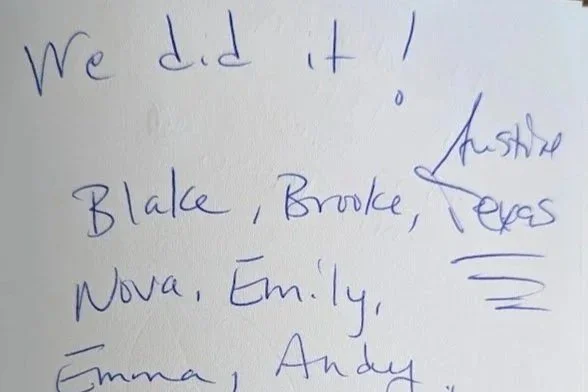 We did it!
Austin
Texas
Blake, Brooke,
Nova, Emily,
Emma, Andy